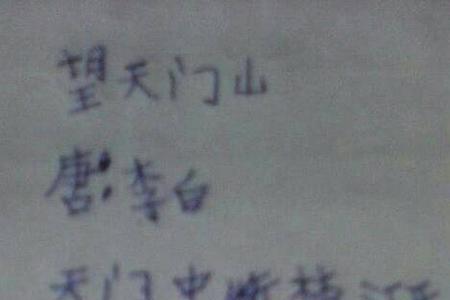 望天门山
唐:李白
天门中断楚江开